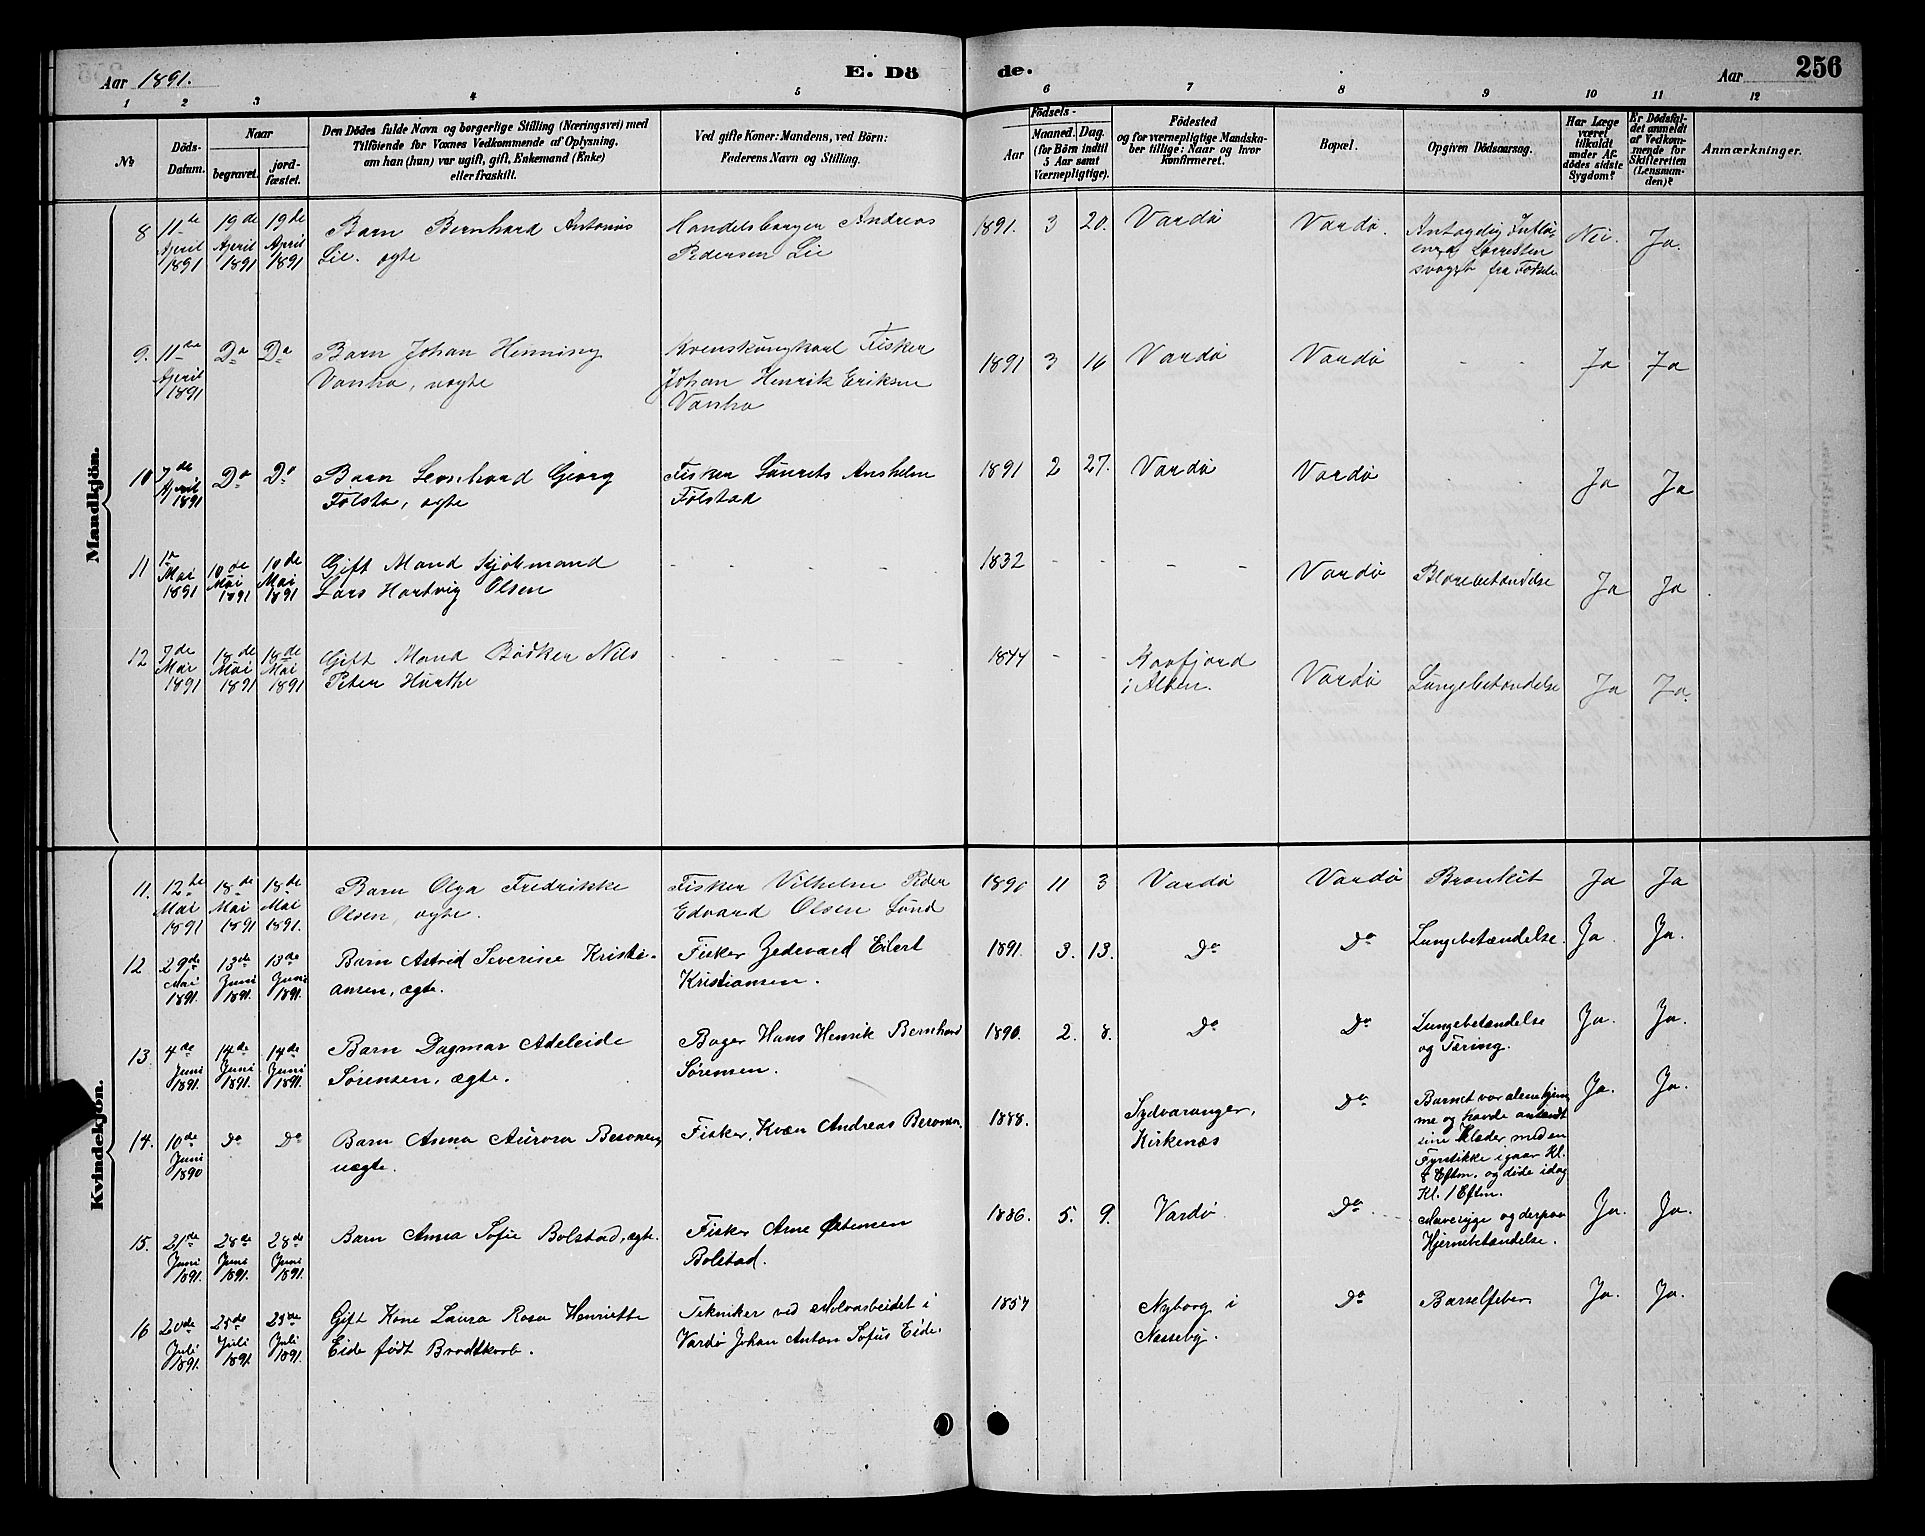 Aar 1891.
E. Döde.
Aar
256
1 2 3 4 5 6 7 8 9 10 11 12
No
Döds-Datum.
Naar
begravet.
jordfæstet.
Den Dödes fulde Navn og borgerlige Stilling (Næringsvei) med
Tilföiende for Voxnes Vedkommende af Oplysning,
om han (hun) var ugift, gift, Enkemand (Enke)
eller fraskilt.
Ved gifte Koner: Mandens, ved Börn:
Faderens Navn og Stilling.
Födsels-
Aar
Maaned. Dag.
(for Börn indtil
5 Aar samt
Værnepligtige).
Födested
og for værnepligtige Mandskaber tillige: Naar og hvor
konfirmeret.
Bopæl.
Opgiven Dödsaarsag.
Har Læge
været
tilkaldt
under Afdödes sidste
Sygdom?
Er Dödsfaldet anmeldt
af Vedkommende for
Skifteretten
(Lensmanden)?
Anmærkninger.
Mandkjön.
8 11te April 1891 19de April 1891 19de April 1891
Barn Bernhard Antonius
Lie. ægte
Handelsborger Andreas
Pedersen Lie
1891. 3 20. Vardø Vardø.
svagt fra Fødsel
Nei. Ja.
9. 11te April 1891 Do Do
Barn Johan Henning
Vanha, uægte
Fisker
Johan Henrik Eriksen
Vanha
1891 3 16 Vardø Vardø - - Ja Ja
10 7de April 1891 Do Do
Barn Leonhard Georg
Folsta, ægte
Fisker Laurits Anshelm
Følstad
1891 2 27. Vardø Vardø - - Ja Ja
11 1ste Mai 1891 10de Mai 1891 10de Mai 1891
Gift Mand Kjøbmand
Lars Hartvig Olsen
- - - - -
1832 - - - - Vardø Blærebetændelse Ja Ja
12 7de Mai 1891 18de Mai 1891 18de Mai 1891
Gift Mand Bødker Nils
Peter Hurthe
- - - - -
1844 - - Kaafjord
i Alten. Vardø Lungebetændelse Ja Ja.
Kvindekjön.
11. 12te Mai 1891 18de Mai 1891 18de Mai 1891.
Barn Olga Fredrikke
Olsen, ægte.
Fisker Vilhelm Peder
Edvard Olsen Lund
1890 11 3 Vardø Vardø Bronkit Ja Ja
12 29de Mai 1891. 13de Juni 1891. 13de Juni 1891.
Barn Astrid Severine Kristiansen, ægte.
Fisker Zedevard Eilert
Kristiansen.
1891. 3. 13. Do Do Lungebetændelse. Ja. Ja.
13. 4de Juni 1891. 14de Juni 1891. 14de Juni 1891.
Barn Dagmar Adeleide
Sørensen, ægte.
Bager Hans Henrik Bernhard
Sørensen.
1890. 2. 8. Do Do Lungebetændelse
og Tæring. Ja. Ja.
14. 10de Juni 1890 Do Do
Barn Anna Aurora Besonen,
uægte.
Fisker, Kvæn Andreas Besonen.
1888. Sydvaranger,
Kirkenæs Do
Barnet var alene hjemme og havde antændt
sine Klæder med en
Fyrstikke igaar Kl.
8 Eftm. og døde idag
Kl. 1 Eftm.
Ja. Ja.
15. 21de Juni 1891. 28de Juni 1891. 28de Juni 1891.
Barn Anna Sofie Bolstad, ægte.
Fisker Arne Østensen
Bolstad.
1886. 5. 9. Vardø. Do Mavesyge og derpaa
Hjernebetændelse. Ja. Ja.
16 20de Juli 1891. 25de Juli 1891. 25de Juli 1891.
Gift Kone Laura Rosa Henriette
Eide født Brodtkorb.
Tekniker ved Moloarbeidet i
Vardø Johan Anton Sofus Eide.
1857 Nyborg i
Nesseby. Do Barselfeber Ja. Ja.